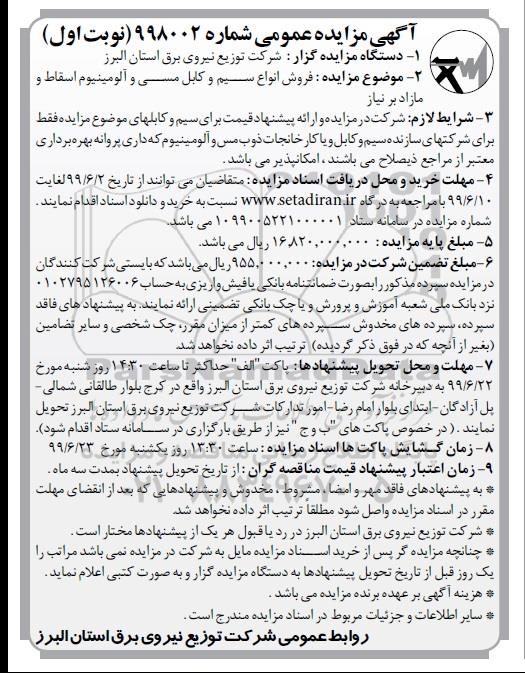 آگهی مزایده عمومی شماره ۹۹۸۰۰۲ (نوبت اول)
۱- دستگاه مزایده گزار : شرکت توزیع نیروی برق استان البرز
۲- موضوع مزایده : فروش انواع سیم و کابل مسی و آلومینیوم اسقاط و
مازاد بر نیاز
۳- شرایط لازم: شرکت در مزایده و ارائه پیشنهاد قیمت برای سیم و کابلهای موضوع مزایده فقط
برای شرکتهای سازنده سیم و کابل و یا کارخانجات ذوب مس و آلومینیوم که دارای پروانه بهره برداری
معتبر از مراجع ذیصلاح می باشند ، امکانپذیر می باشد .
۴- مهلت خرید و محل دریافت اسناد مزایده : متقاضیان می توانند از تاریخ ۹۹/۶/۲ لغایت
۹۹/۶/۱۰ با مراجعه به درگاه www.setadiran.ir نسبت به خرید و دانلود اسناد اقدام نمایند .
شماره مزایده در سامانه ستاد ۱۰۹۹۰۰۵۲۲۱۰۰۰۰۰۱ می باشد.
۵- مبلغ پایه مزایده : ۱۶،۸۲۰،۰۰۰،۰۰۰ ریال می باشد.
۶- مبلغ تضمین شرکت در مزایده: ۹۵۵،۰۰۰،۰۰۰ ریال می باشد که بایستی شرکت کنندگان
در مزایده سپرده مذکور را بصورت ضمانتنامه بانکی یا فیش واریزی به حساب ۰۱۰۲۷۹۵۱۲۶۰۰۶
نزد بانک ملی شعبه آموزش و پرورش و یا چک بانکی تضمینی ارائه نمایند. به پیشنهاد های فاقد
سپرده، سپرده های مخدوش سپرده های کمتر از میزان مقرر، چک شخصی و سایر تضامین
(بغیر از آنچه که در فوق ذکر گردیده) ترتیب اثر داده نخواهد شد.
۷- مهلت و محل تحویل پیشنهادها: پاکت "الف" حداکثر تا ساعت ۱۴:۳۰ روز شنبه مورخ
۹۹/۶/۲۲ به دبیرخانه شرکت توزیع نیروی برق استان البرز واقع در کرج بلوار طالقانی شمالی-
پل آزادگان- ابتدای بلوار امام رضا- امور تدارکات شرکت توزیع نیروی برق استان البرز تحویل
نمایند . ( در خصوص پاکت های "ب و ج" نیز از طریق بارگزاری در سامانه ستاد اقدام شود).
۸- زمان گشایش پاکت ها اسناد مزایده : ساعت ۱۳:۳۰ روز یکشنبه مورخ ۹۹/۶/۲۳
۹- زمان اعتبار پیشنهاد قیمت مناقصه گران : از تاریخ تحویل پیشنهاد بمدت سه ماه .
* به پیشنهادهای فاقد مهر و امضا ، مشروط ، مخدوش و پیشنهادهایی که بعد از انقضای مهلت
مقرر در اسناد مزایده واصل شود مطلقا ترتیب اثر داده نخواهد شد.
* شرکت توزیع نیروی برق استان البرز در رد یا قبول هر یک از پیشنهادها مختار است .
* چنانچه مزایده گر پس از خرید اسناد مزایده مایل به شرکت در مزایده نمی باشد مراتب را
یک روز قبل از تاریخ تحویل پیشنهادها به دستگاه مزایده گزار و به صورت کتبی اعلام نماید .
* هزینه آگهی بر عهده برنده مزایده می باشد .
* سایر اطلاعات و جزئیات مربوط در اسناد مزایده مندرج است .
روابط عمومی شرکت توزیع نیروی برق استان البرز